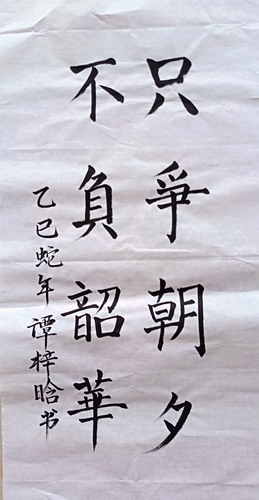 只爭朝夕
不負韶華
乙巳蛇年谭梓晗书